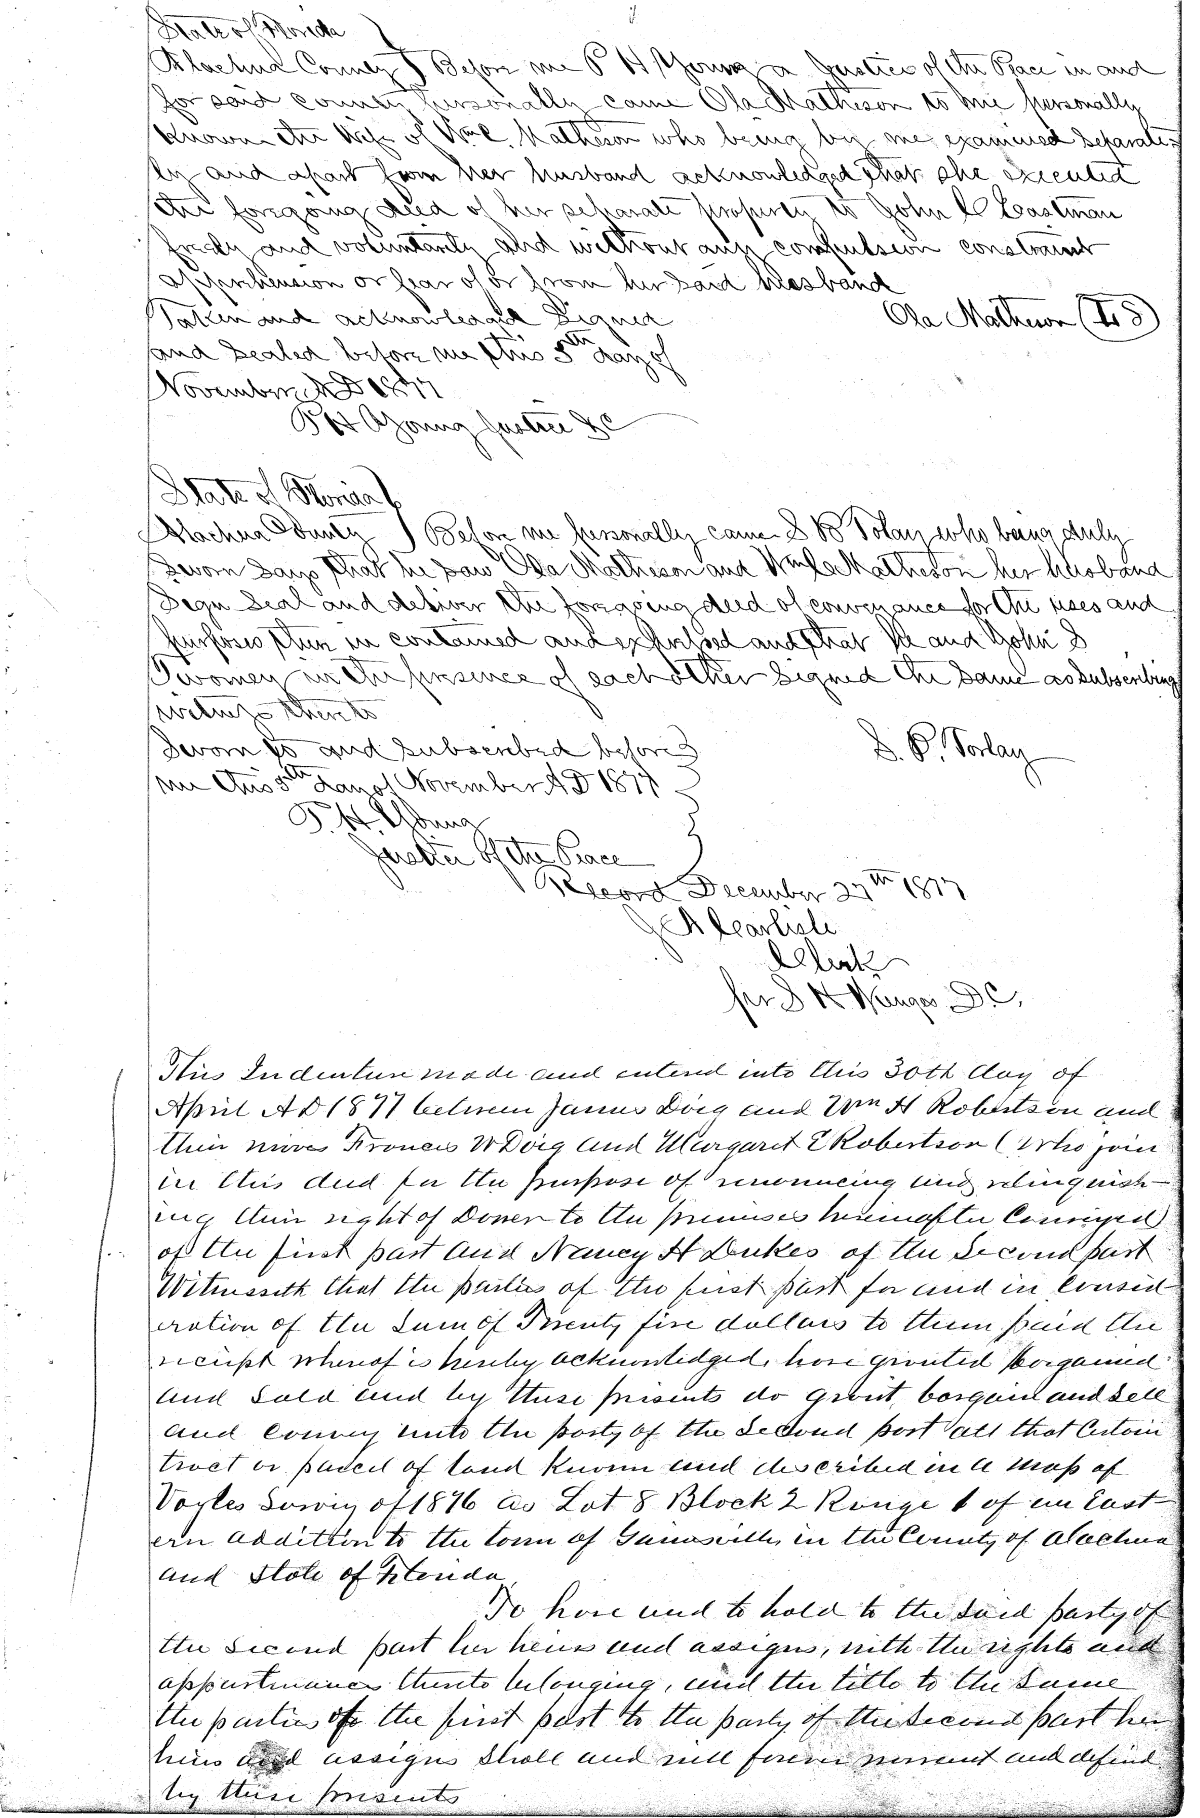 State of Florida
Alachua County } Before me P H Young a Justice of the Peace in and
for said county personally came Ola Matheson to me personally
known the Wife of Wm C. Matheson who being by me examined separate-
ly and apart from her husband acknowledged that she executed
the foregoing deed of her separate property to John C Eastman
freely and voluntarily and without any compulsion constraint
apprehension or fear of or from her said Husband
Taken and acknowledged Signed
Ola Matheson (L S)
and Sealed before me this 5th day of
November A D 1877
P H Young Justice &c
State of Florida
Alachua County } Before me personally came S B Tolay who being duly
Sworn Says that he saw Ola Matheson and Wm C Matheson her husband
Sign Seal and deliver the foregoing deed of conveyance for the uses and
purposes then in contained and expressed and that He and John S
Twomey in the presence of each other Signed the Same as subscribing
witness thereto
Sworn to and subscribed before
S. P. Torlay
me this 5th day of November A D 1877
P. H. Young
Justice of the Peace
Record December 27th 1877
J A Carlisle
Clerk
per S H D.C.
This Indenture made and enterd into this 30th day of
April A D 1877 between James Doig and Wm H Robertson and
their wives Frances W Doig and Margaret E Robertson ( Who join
in this deed for the purpose of renouncing and relinquish-
ing their right of Dower to the premises hereinafter Conveyed)
of the first part and Nancy H Dukes of the Second part
Witnesseth that the parties of the first part for and in Consid-
eration of the Sum of Twenty five dollars to them paid the
receipt whereof is hereby acknowledged, have granted bargained
and Sold and by these presents do grant, bargain and Sell
and Convey unto the party of the Second part all that Certain
tract or parcel of land Known and described in a Map of
Voyles Survey of 1876 as Lot 8 Block 2 Range 1 of an East-
ern addition to the town of Gainesville, in the County of Alachua
and State of Florida
To have and to hold to the Said party of
the Second part her heirs and assigns, with the rights and
appurtenances thereto belonging, and the title to the Same
the parties of the first part to the party of the Second part her
heirs and assigns Shall and will forever warrant and defend
by these presents